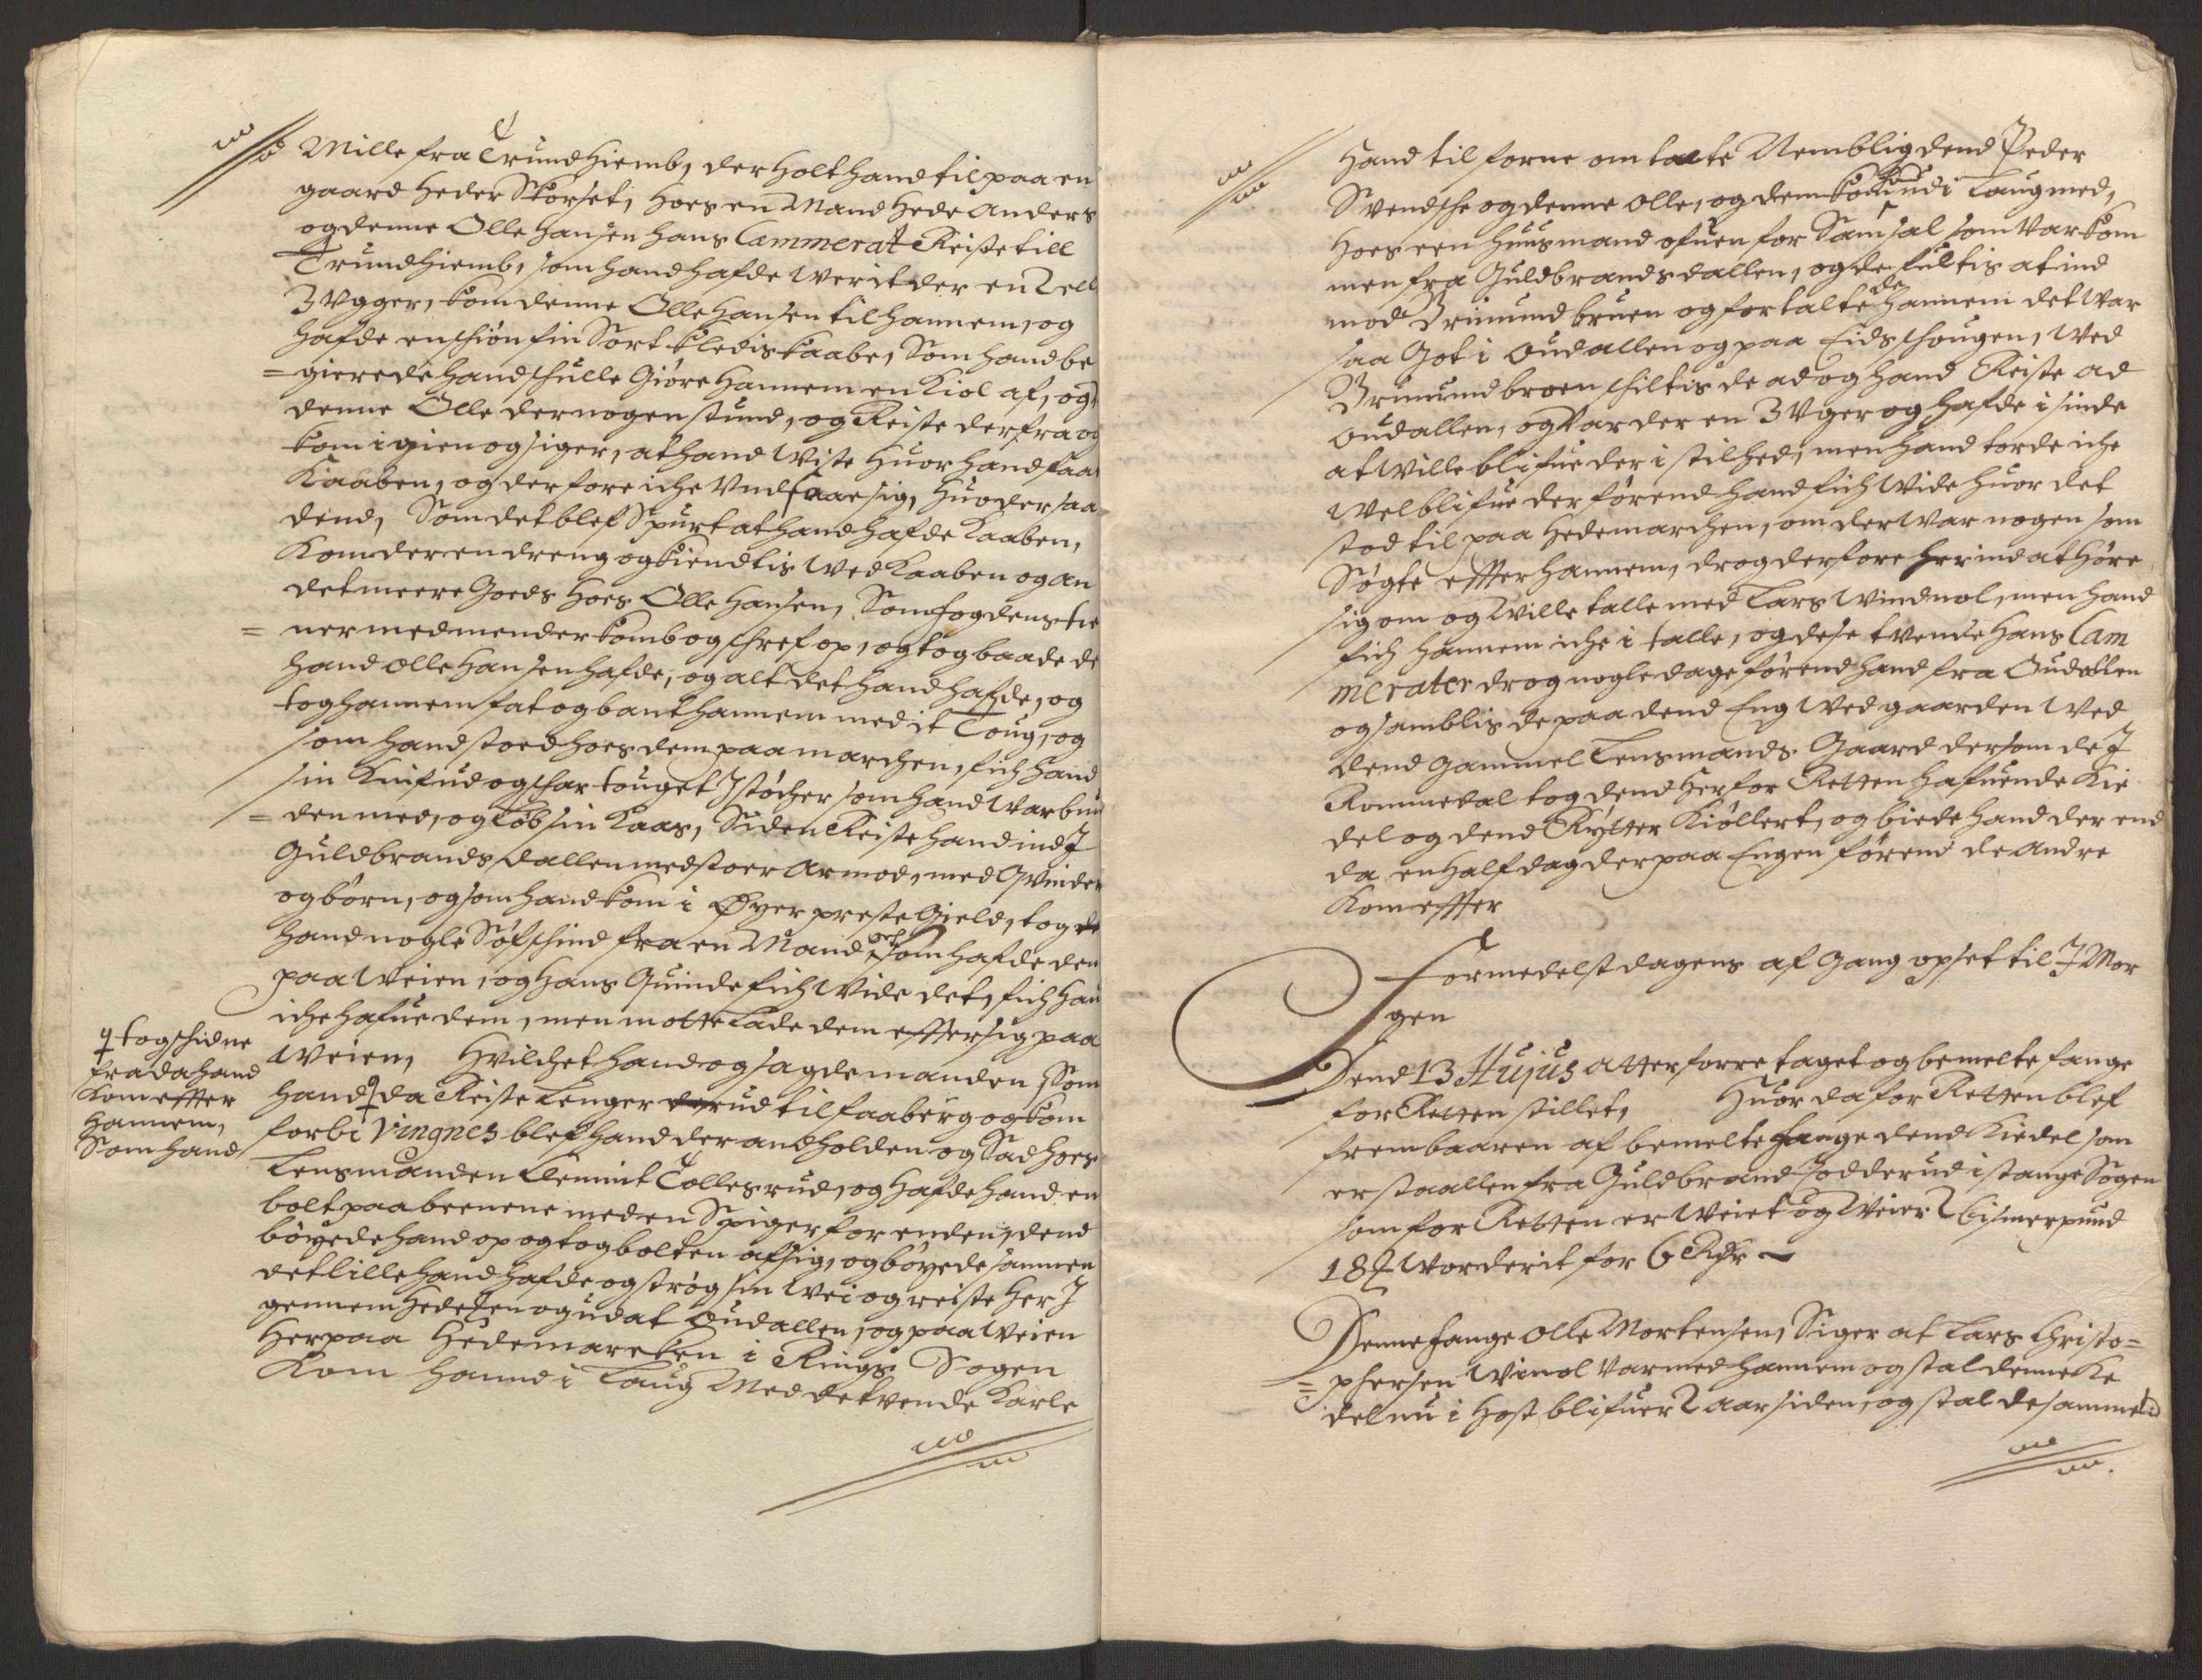 Mille fra Trundhiemb, der holt hand til paa en
gaard heder Skorset, hoes en Mand hede Anders
og denne Olle Hansen hans Cammerat Reiste till
Trundhiemb, som hand hafde werit der en 2 ell
3 Vgger, kom denne Olle Hansen til hannem, og
hafde en schiøn fin Sort kledis kaabe, Som hand be
= gierede hand schulle Giøre hannem en Kiol af, og
denne Olle der nogen stund, og Reiste der fra og
kom igien og siger, at hand wiste huor hand faa
Kaaben, og derfore iche Vndsaae sig, huo der saa
dend, Som det blef Spurt at hand hafde Kaaben,
Kom der en dreng og kiendtis wed kaaben og an
det meere Goeds hoes Olle Hansen, Som fogdens tie
= ner med mender komb og schref op, og tog baade de
hand Olle Hansen hafde, og alt det hand hafde, og
tog hannem fat og bant hannem med it Toug, og
som hand stoed hoes dem paa marchen, fich hand
sin Knif ud og schar touget J støcher som hand war bun
= den med, og Løb sin kaas, Siden Reiste hand ind J
Guldbrandsdallen med stoer Armod, med Qvinde
og børn, og som hand kom i Øyer preste Gield, tog
hand nogle Søfschind fra en Mand och som hafde den
paa weien, og hans Quinde fich wide det, fich hand
iche hafue dem, men motte Lade dem effter sig paa
Weien, Hvilchet hand og sagde manden, Som
hand ɋ da Reiste Lenger der ud til faaberg og kom
forbi Vingnes blef hand der andholden og Sad hoes
Lensmanden Clemint Tollesrud, og hafde hand en
bolt paa beenene med en Spiger for enden, dend
bøyede hand op og tog bolten af sig, og bøyede sammen
det lille hand hafde og strøg sin wei og reiste her J
gennem hede en og ud at Oudallen, og paa weien
her paa Hedemarcken i Rings Sogen
Kom hannd i Laug Med de tvende Karle
ɋ tog schidne
fra da hand
Kom effter
hannem,
Som hand
Hand til forne om talte Nemblig dend Peder
Svendsche og denne Olle, og dem kom hand i Laug med,
hoes een huusmand ofuen for Samsal som war kom
men fra Guldbrandsdallen, og de fultis at ind
mod Brimund bruen og fortalte de hannem det war
saa Got i Oudallen og paa Eidschougen, wed
Brimund broen schiltis de ad og hand Reiste ad
Oudallen, og war der en 3 Vger og hafde i sinde
at wille blifue der i stilhed, men hand torde iche
wel blifue der førend hand fich wide huor det
stod til paa Hedemarchen, om der war nogen som
Søgte effter hannem, drog derfore her ind at høre
sig om og wille talle med Lars Windnol, men hand
fich hannem iche i talle, og dese tvende hans Cam
merater drog nogle dage førend hand fra Oudallen
og samblis de paa dend Eng wed gaarden wed
dend gammel Lensmands Gaard der som de J
Rommedal tog dend her for Retten hafuende Kie
del og dend Rytter Kiøllert, og biede hand der end
da en half dag der paa Engen førend de andre
Kom effter
Formedelst dagens af Gang opset til J Mor
gen
Dend 13 Hujus atter forre taget og bemelte fange
for Retten stillet, Huor da for Retten blef
frembaaren af bemelte fange dend Kiedel som
er staallen fra Guldbrand Jodderud i stange Sogen
som for Retten er Weiet og Weier 2 bismerpund
18 ℔ worderit for 6 Rdr
Denne fange Olle Mortensen, Siger at Lars Christo=
= phersen Winol war med hannem og stal denne Ke
del nu i høst blifuer 2 aar siden, og stal de samme